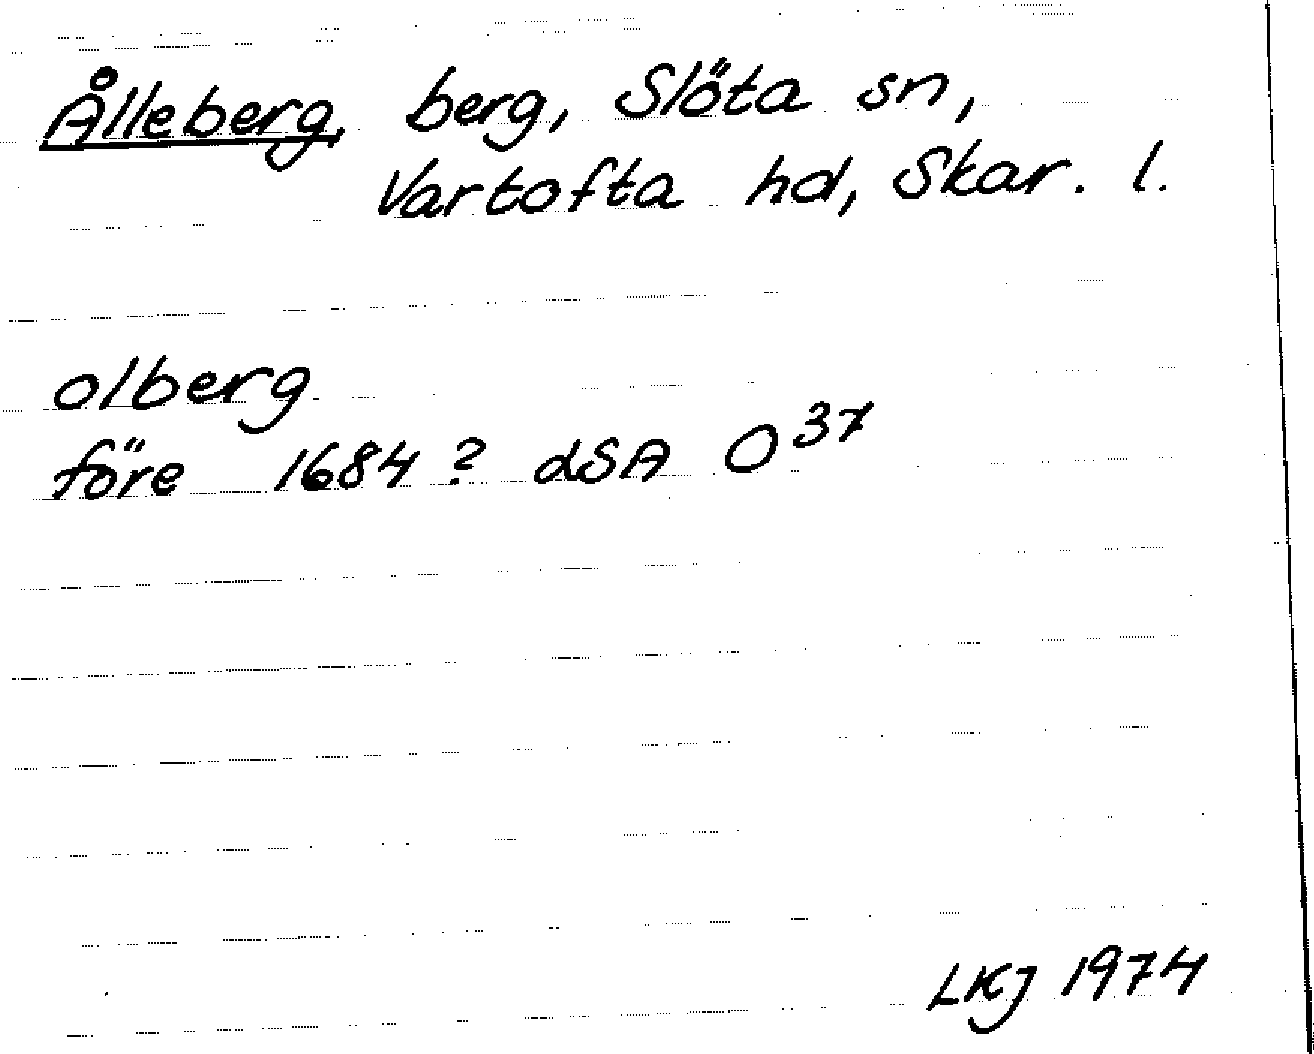 Ålleberg, berg, Slöta sn,
Vartofta hd, Skar. l.
olberg
före 1684? dSA O³⁷
LKJ 1974